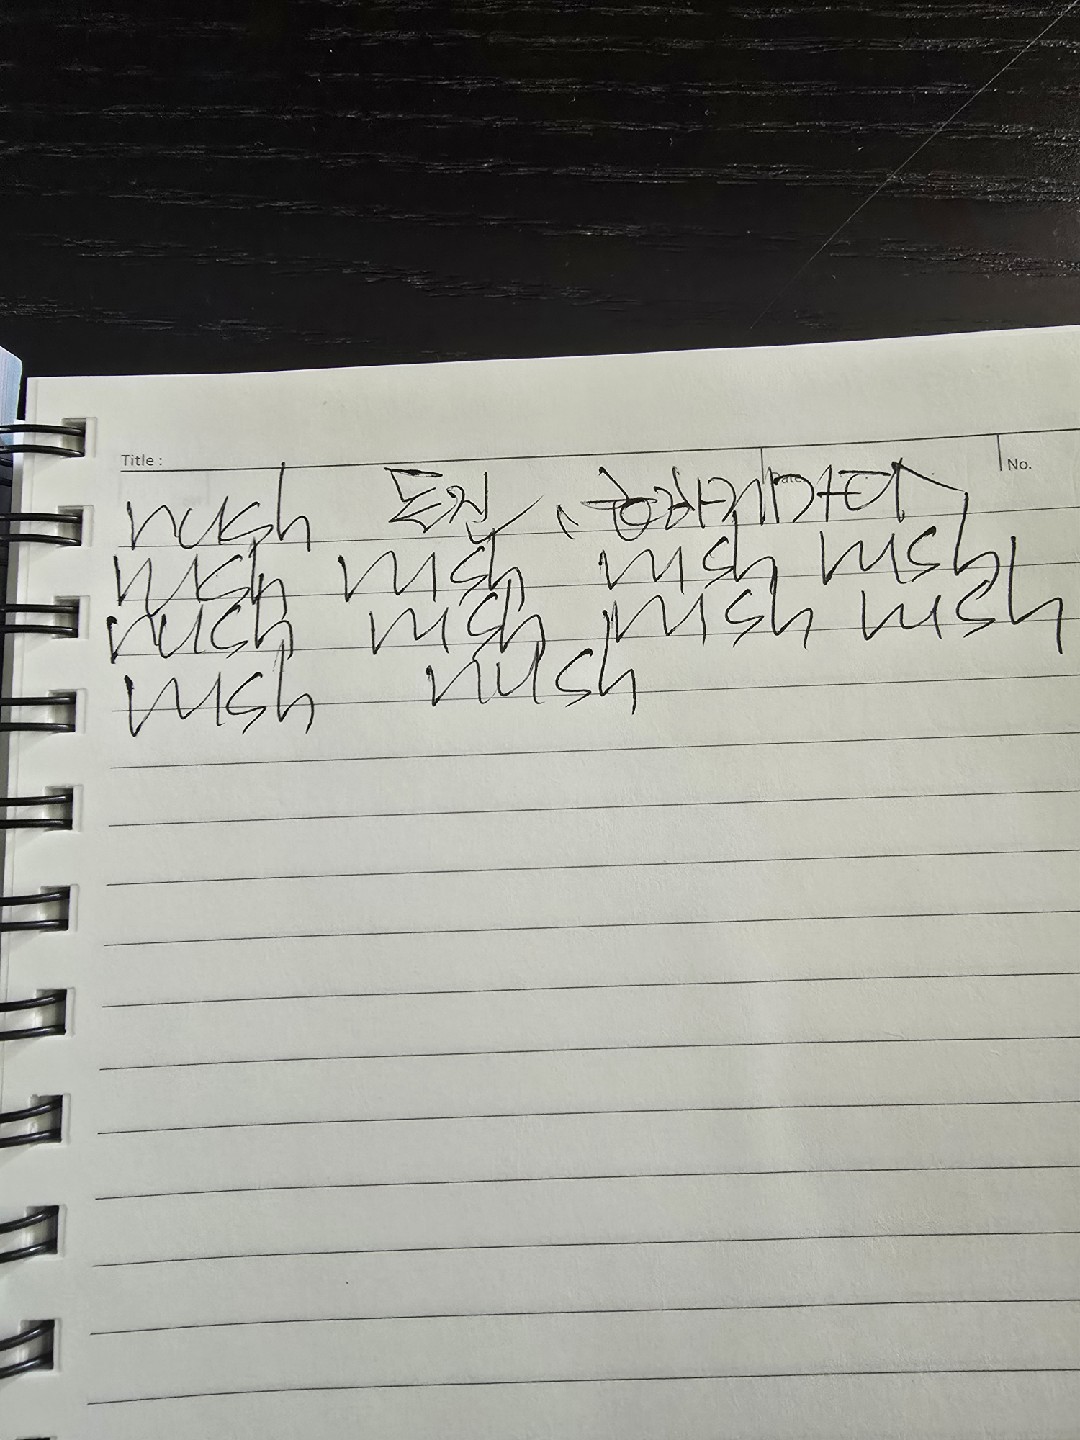 Title : Date No.
rush 돌진
rush rush rush rush
rush rush rush rush
rush rush